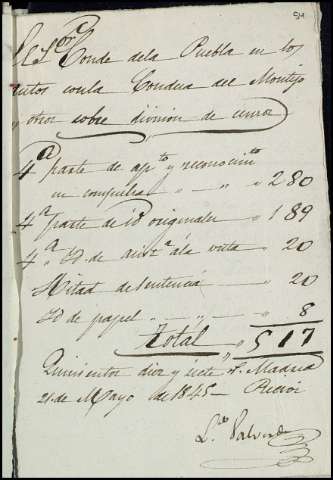 El Sor. Conde dela Puebla en los
autos conla Condesa del Montijo
y otros sobre division de censos
4a parte de apto. y reconocimto
en compulsa " " " 280
4a parte de id originales " 189
4a Id. de asista. ála vista " 20
Mitad de sentencia " 20
Id de papel " " 8
Total " 517
Quinientos diez y siete r. Madrid
21 de Mayo de 1845
L.do Valverde